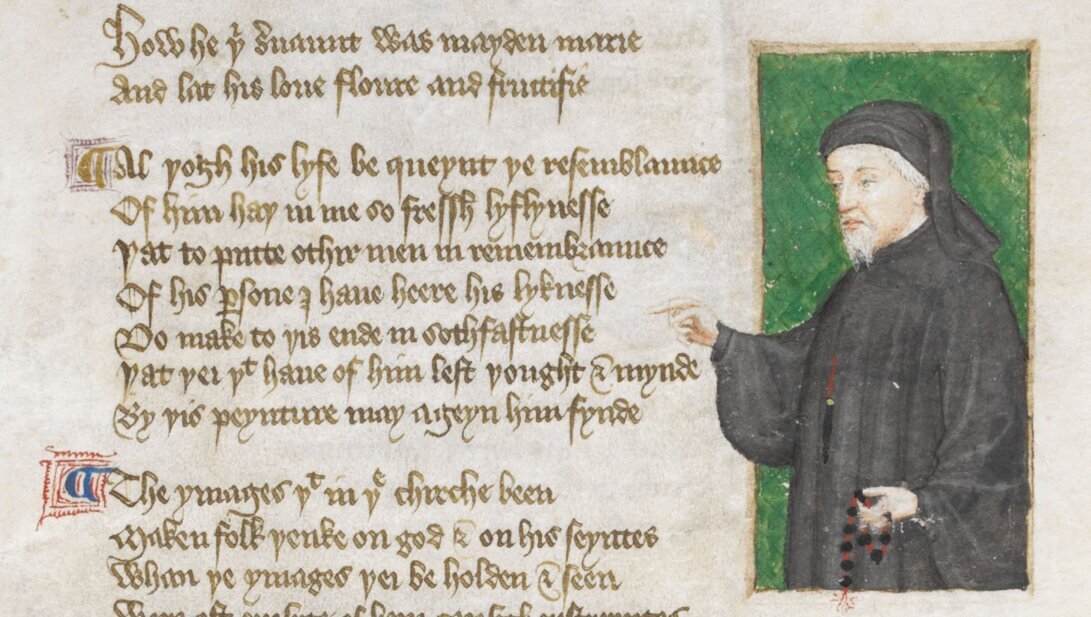 How he yͬ sˀuaunt was mayden marie
And lat his loue floure and fructifie
Al yogh his lyfe be queynt ye resemblaunce
Of him hay in me so fressh lyflynesse
Yat to putte othir men in remembraunce
Of his ꝑsone I haue heere his lyknesse
Do make to yis ende in sothfastnesse
Yat yei yͭ haue of him left yought & mynde
By yis peynture may ageyn him fynde
The ymages yͭ in yͤ chirche been
Maken folk yenke on god & on his seyntes
Whan ye ymages yei be holden & seen